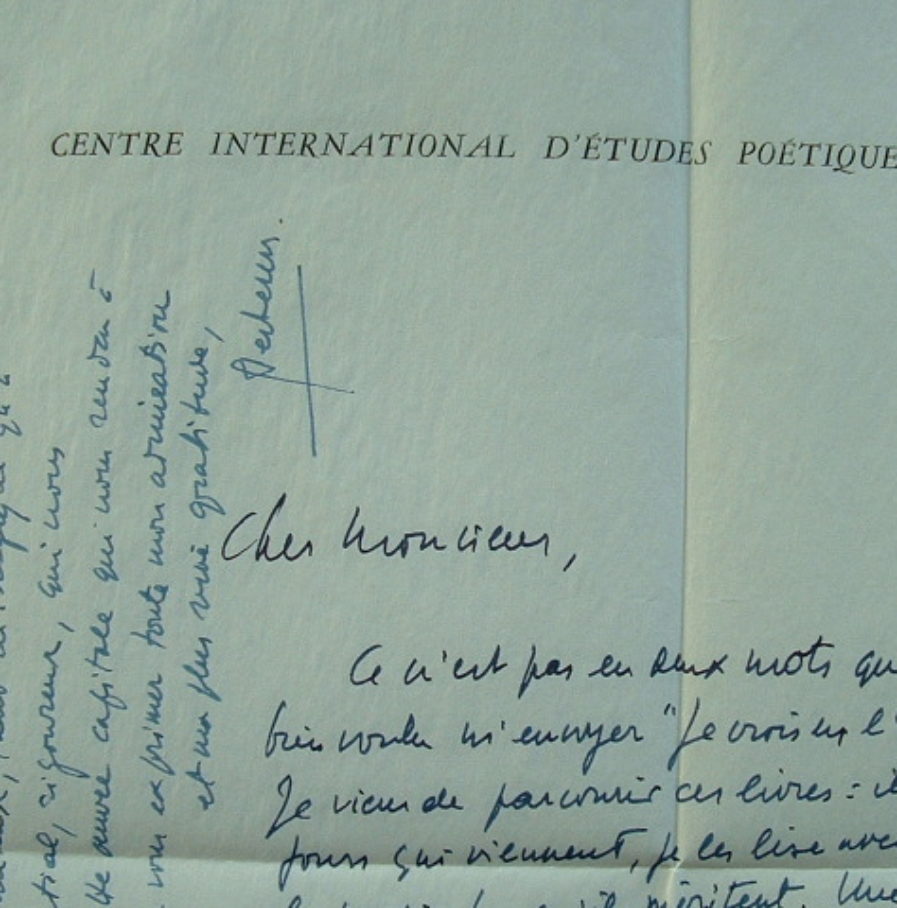 CENTRE INTERNATIONAL D'ÉTUDES POÉTIQUE
Cher Monsieur,
Ce n'est pas en deux mots qu
bien voulu m'envoyer "Je crois en l'
Je viens de parcourir ces livres : il
jours qui viennent, je les lise avec
qu'il méritent. Une
tial, rigoureux, qui nous
œuvre capitale qui nous rendan à
vous exprimer toute mon admiration
et ma plus vive gratitude,